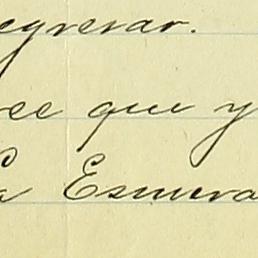 regresar.
ee que y
a Esmera